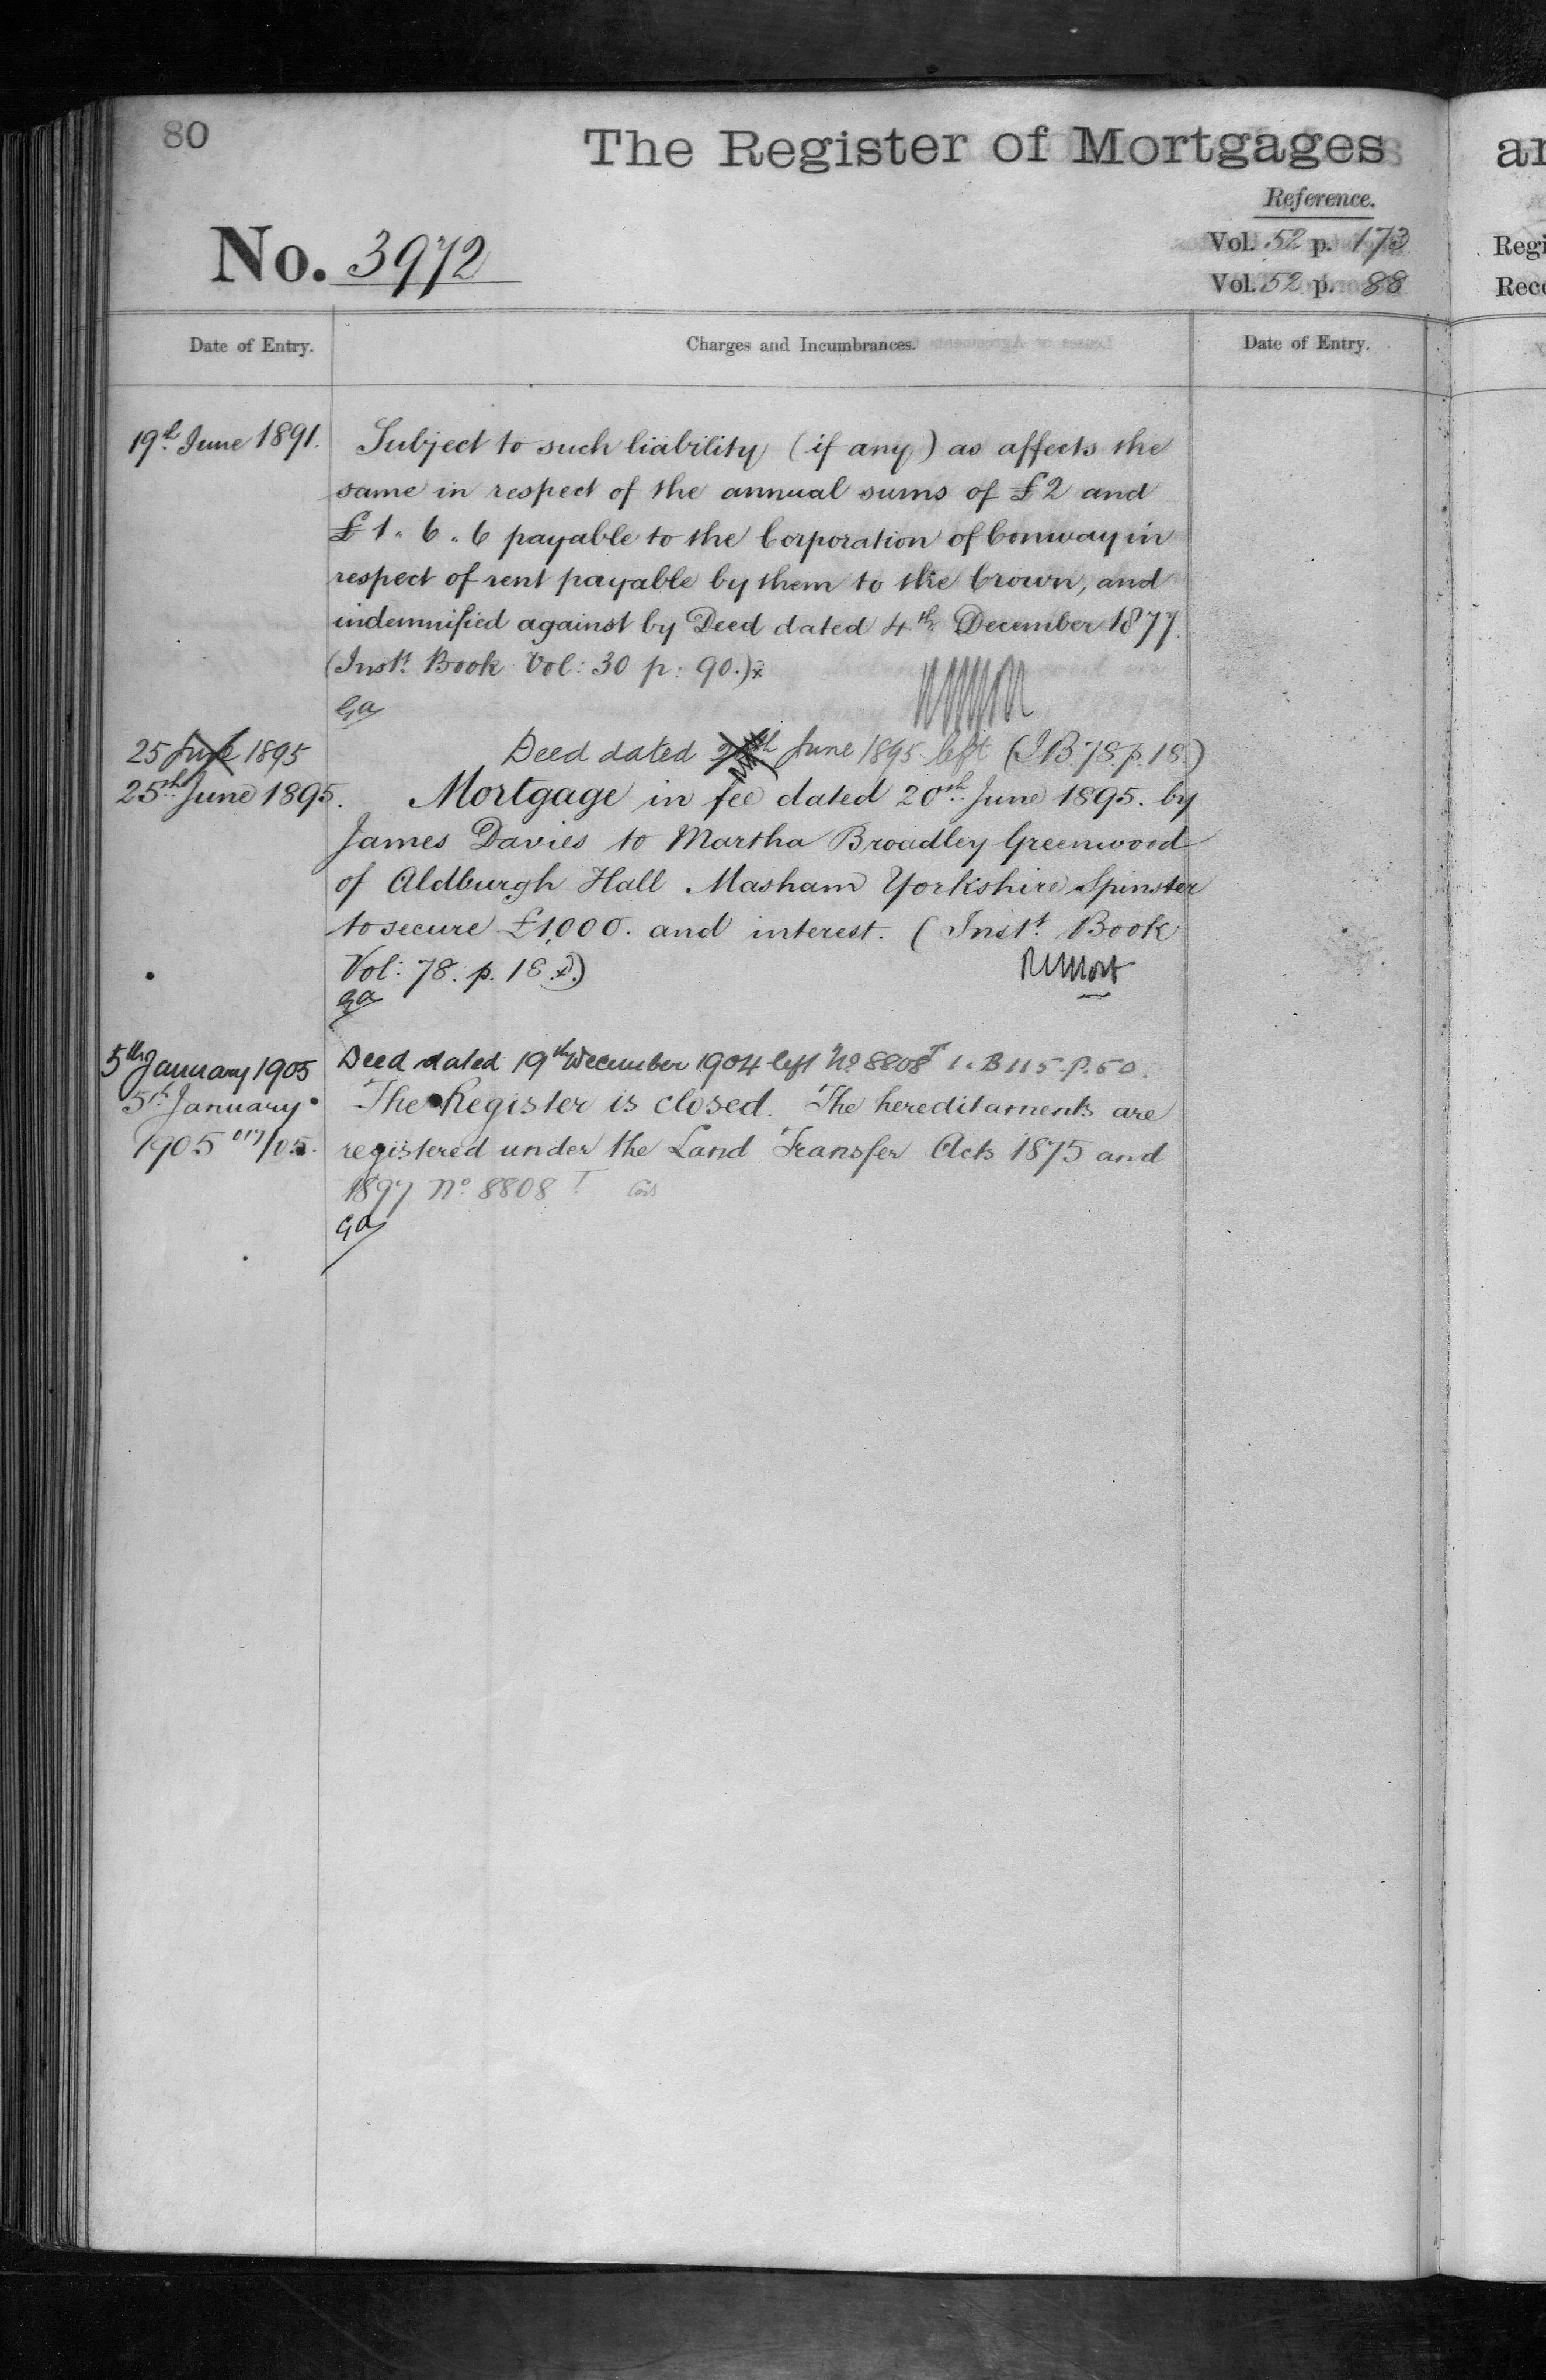 80
The Register of Mortgages
Reference.
No. 3972
Vol. 52 p. 173
Vol. 52 p. 88
Regi
Rec
Date of Entry.
Charges and Incumbrances.
Date of Entry.
19th June 1891.
Subject to such liability (if any) as affects the
same in respect of the annual sums of £2 and
£1. 6. 6 payable to the Corporation of Conway in
respect of rent payable by them to the Crown, and
indemnified against by Deed dated 4th December 1877.
(Inst. Book Vol: 30 p: 90.)
Ga
25 June 1895
Deed dated June 1895 left (I.B. 78. p. 18.)
25th June 1895.
Mortgage in fee dated 20th June 1895. by
James Davies to Martha Broadley Greenwood
of Aldburgh Hall Masham Yorkshire Spinster
to secure £1,000. and interest. (Inst. Book
Vol: 78. p. 18.)
Ga
5th January 1905
Deed dated 19th December 1904 left No 8808T I. B 115. P. 50.
5th January
The Register is closed. The hereditaments are
1905 017/05.
registered under the Land Transfer Acts 1875 and
1897 No 8808 T
Ga